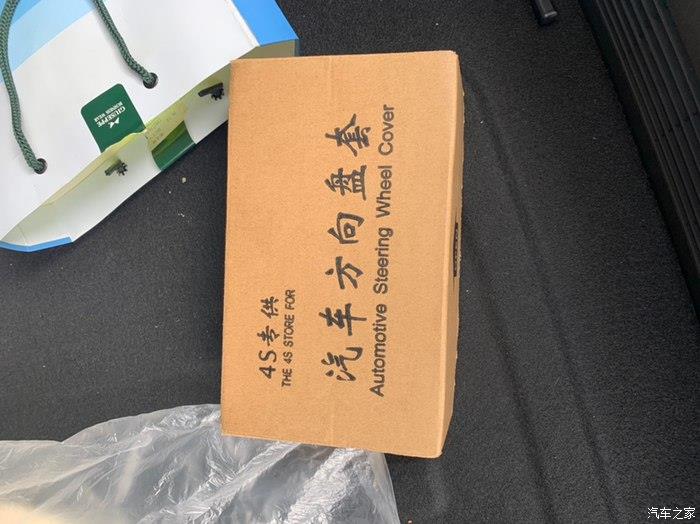 4S专供
THE 4S STORE FOR
汽车方向盘套
Automotive Steering Wheel Cover
GIUSEPPE
汽车之家